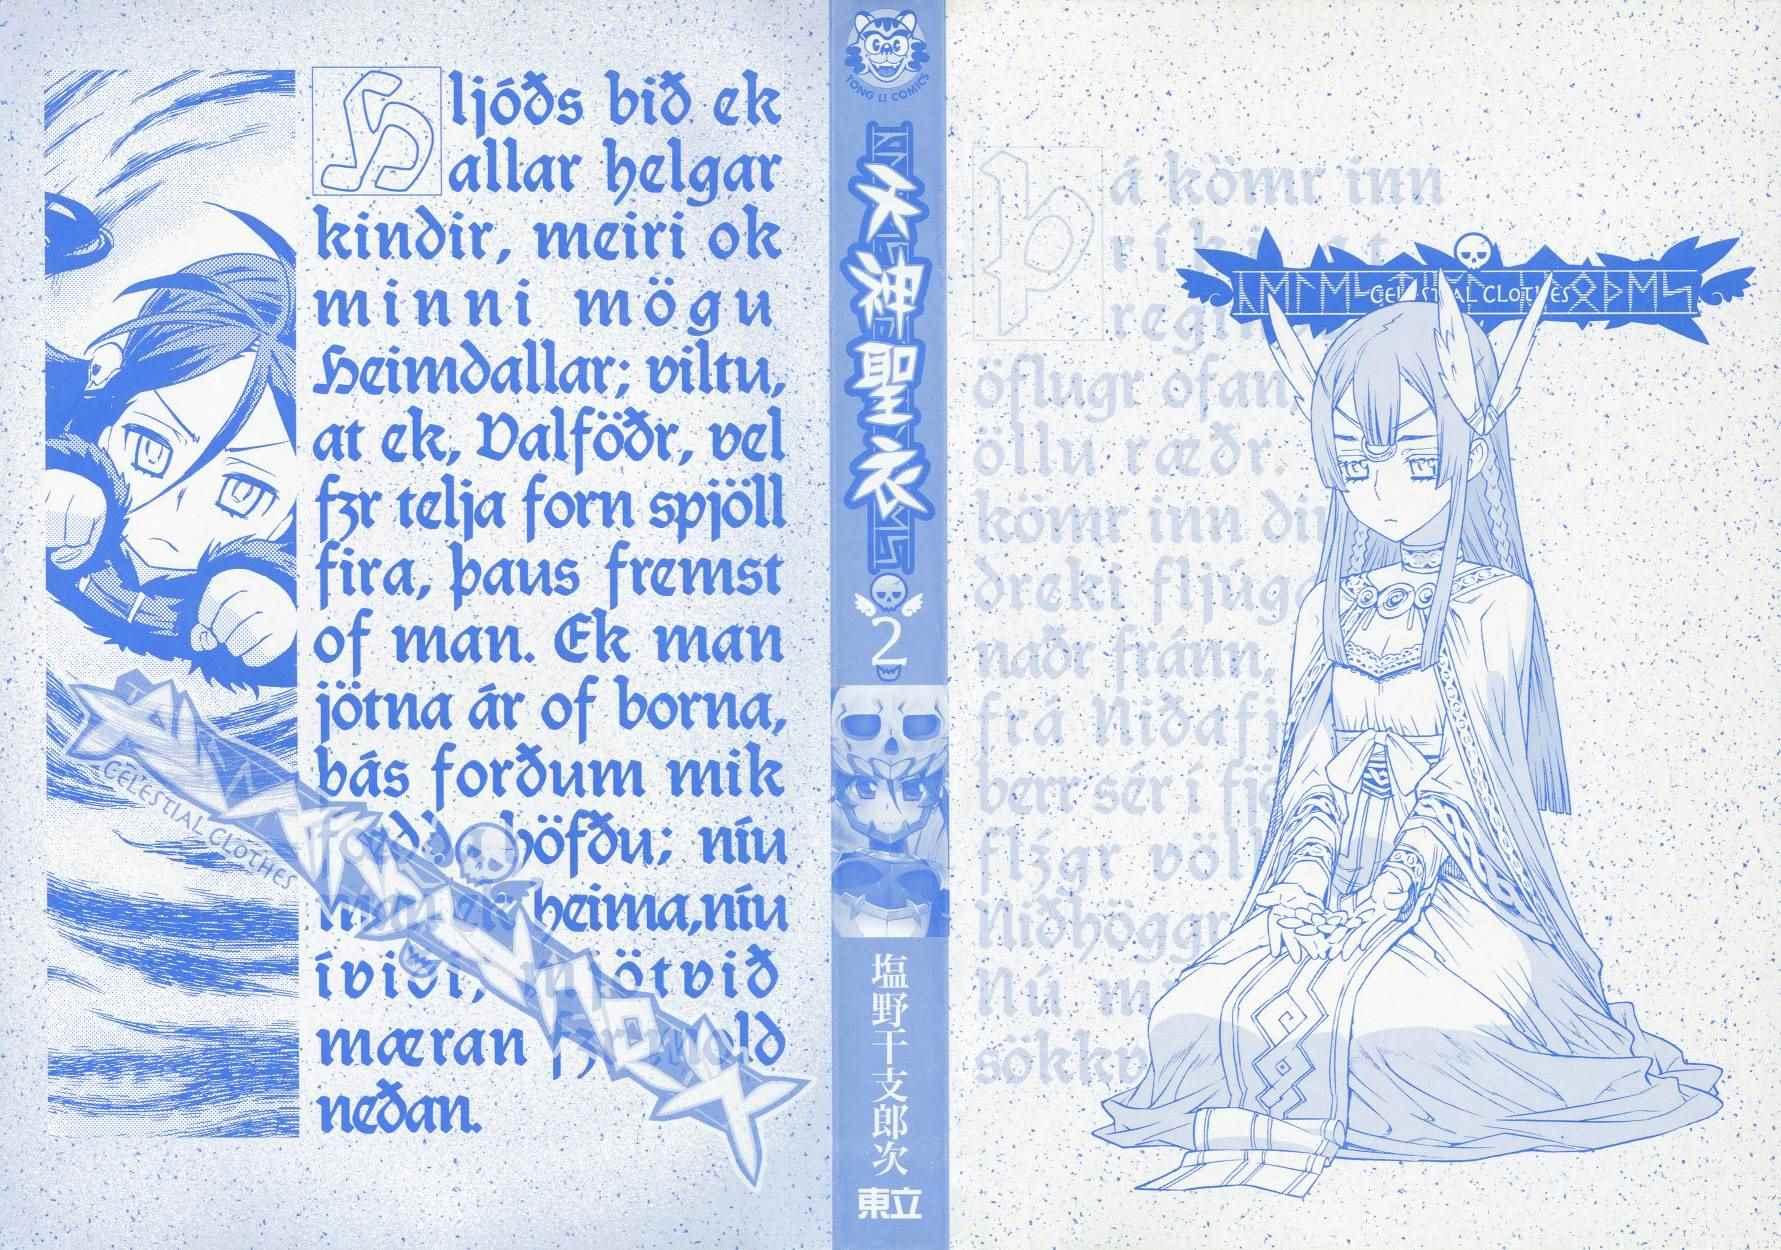 Hljóðs bið ek
allar helgar
kindir, meiri ok
minni mögu
Heimdallar; viltu,
at ek, Valföðr, vel
fʒr telja forn spjöll
fira, þaus fremst
of man. Ek man
jötna ár of borna,
þás forðum mik
höfðu; níu
heima, níu
mjötvið
mæran
neðan.
CELESTIAL CLOTHES
TONG LI COMICS
天神聖衣
2
塩野干支郎次
東立
Þá kömr inn
öflugr ofan,
öllu ræðr.
kömr inn
dreki fljúg
naðr fránn,
frá Niðafj
berr sér í fj
flʒgr völl
Niðhöggr
Nú
sökkv
CELESTIAL CLOTHES